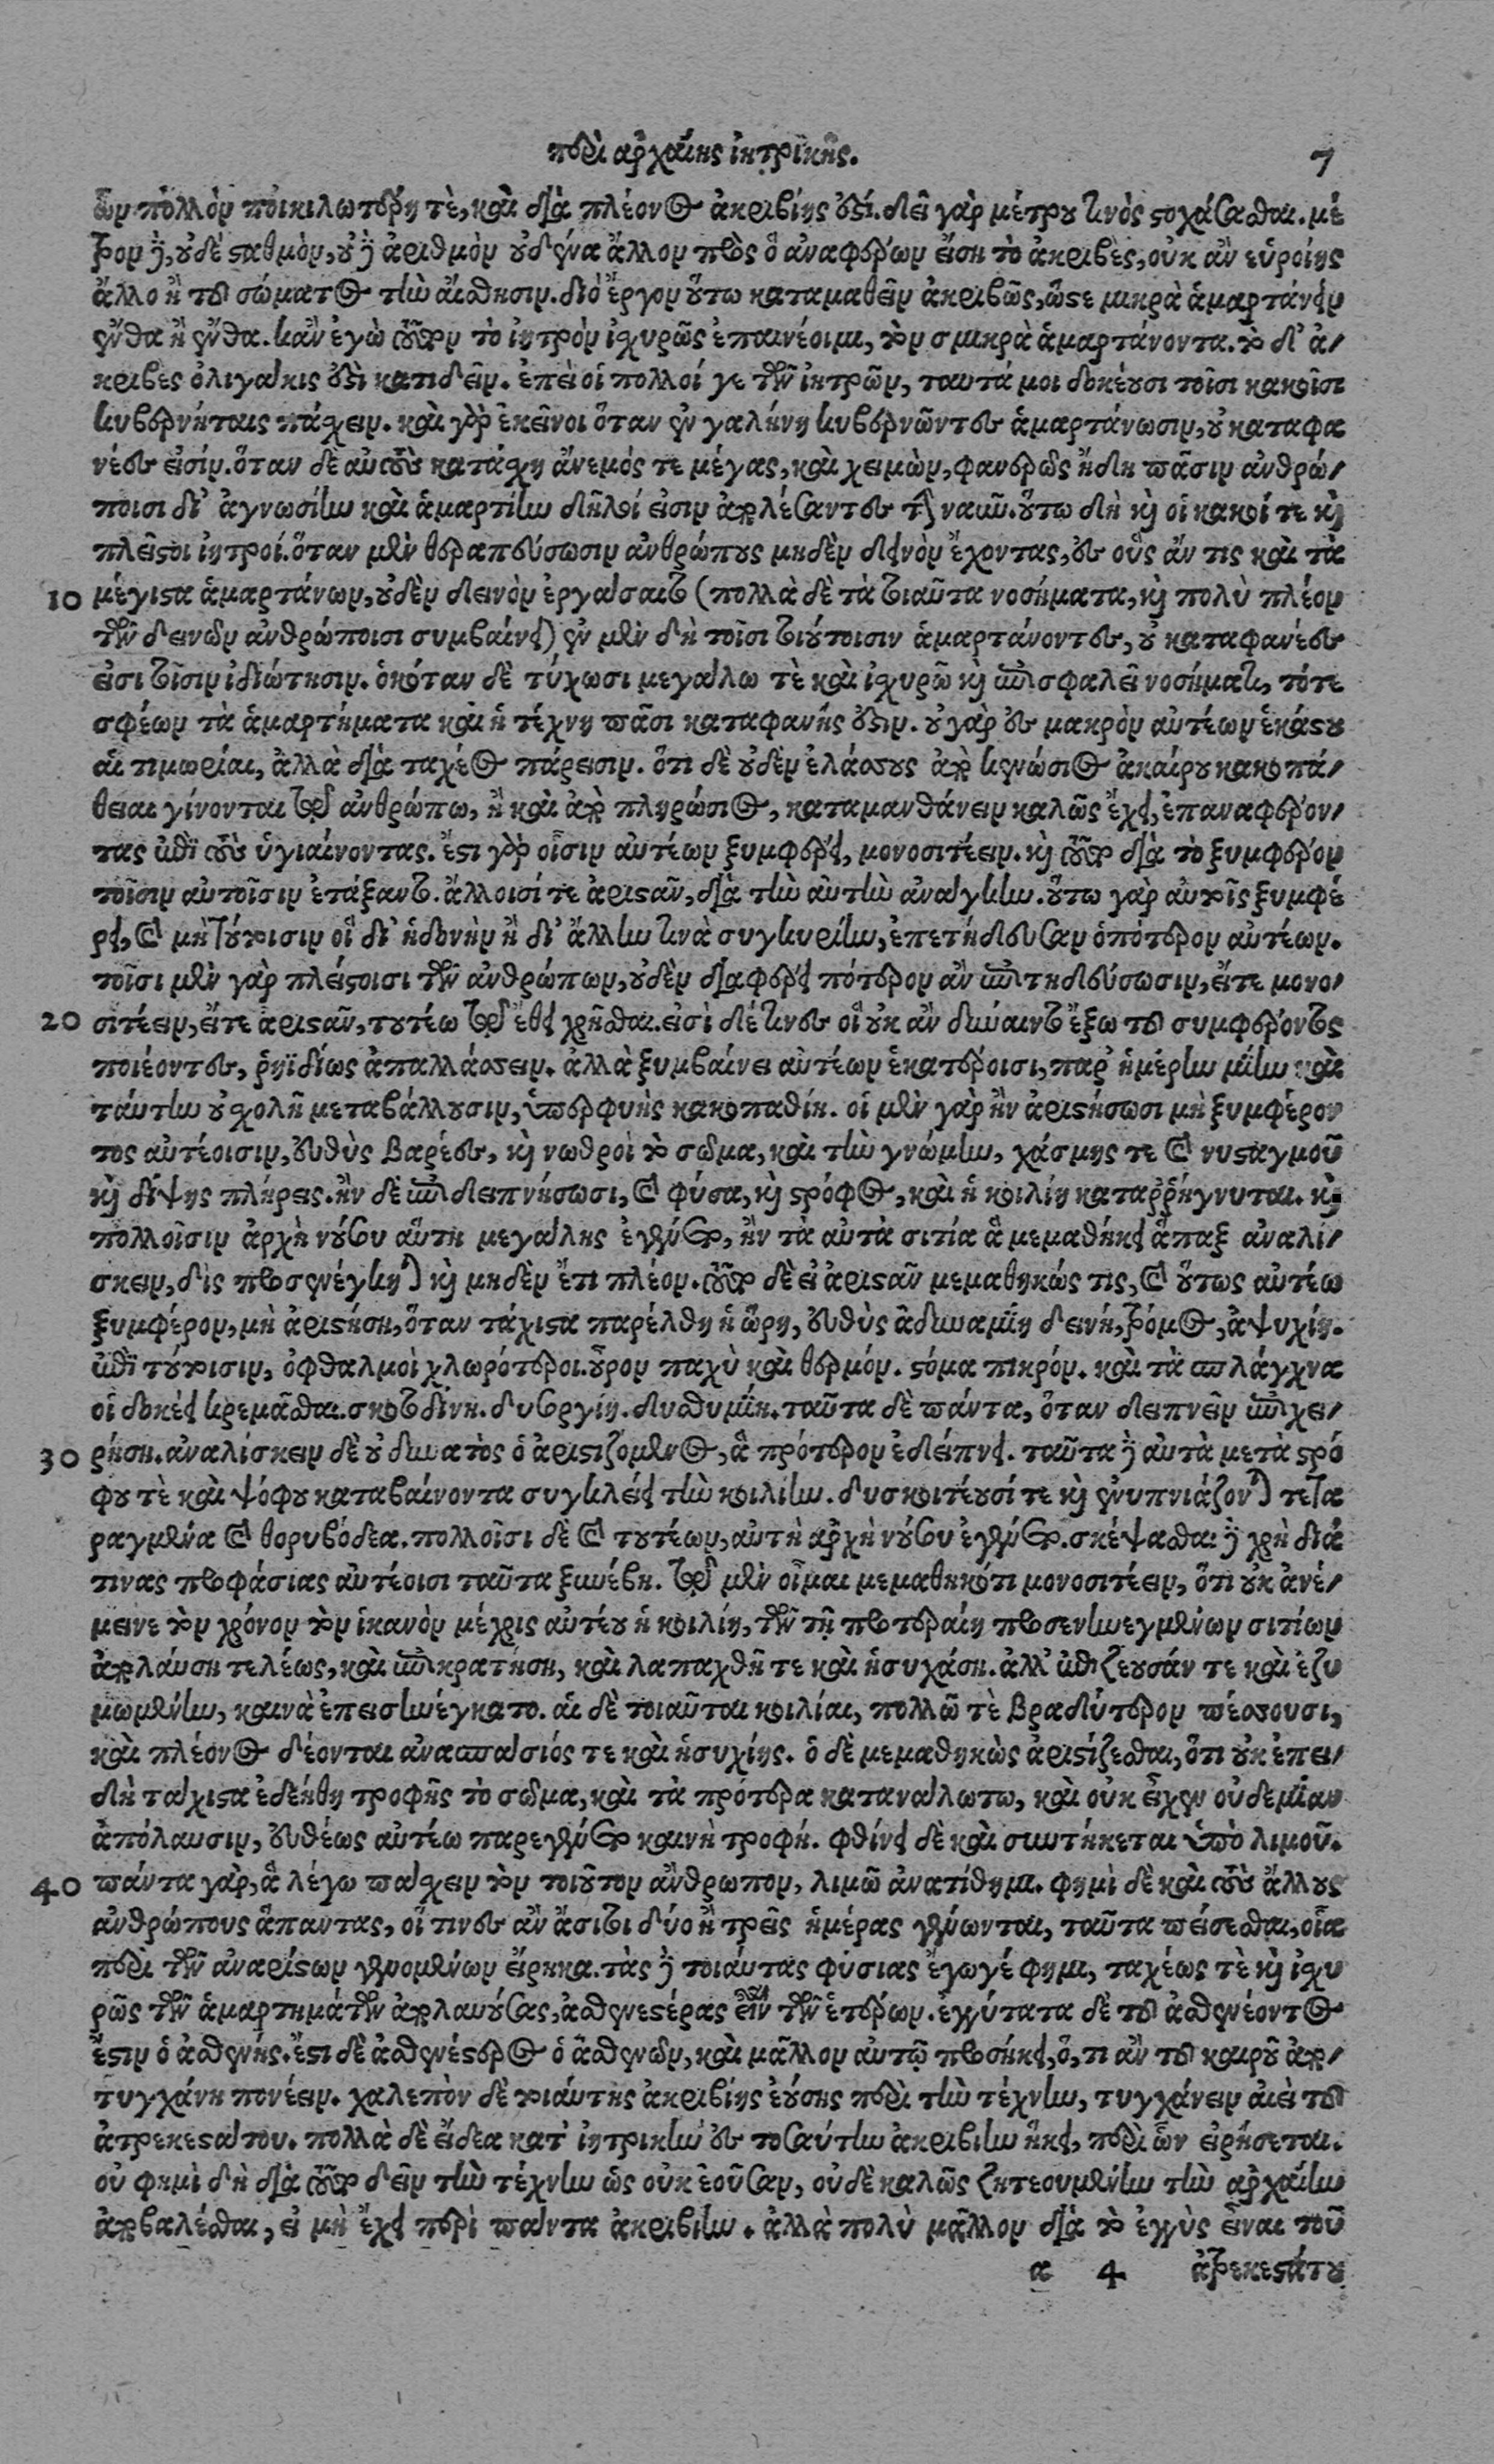 περὶ ἀρχαίης ἰητρικῆς. 7
ὧν πολλὸν ποικιλωτέρη τὲ, καὶ διὰ πλέονος ἀκριβίης ἐστί. δεῖ γὰρ μέτρου τινὸς στοχάσασθαι. μέ
τρον δὲ, οὐδὲ σταθμὸν, οὐδὲ ἀριθμὸν οὐδένα ἄλλον πρὸς ὃ ἀναφέρων εἴση τὸ ἀκριβὲς, οὐκ ἂν εὑροίης
ἄλλο ἢ τοῦ σώματος τὴν αἴσθησιν. διὸ ἔργον οὕτω καταμαθεῖν ἀκριβῶς, ὥστε μικρὰ ἁμαρτάνειν
ἔνθα ἢ ἔνθα. κἂν ἐγὼ τοῦτον τὸ ἰητρὸν ἰχυρῶς ἐπαινέοιμι, τὸν σμικρὰ ἁμαρτάνοντα. τὸ δ' ἀ-
κριβὲς ὀλιγάκις ἐστὶ κατιδεῖν. ἐπεὶ οἱ πολλοί γε τῶν ἰητρῶν, ταυτά μοι δοκέουσι τοῖσι κακοῖσι
κυβερνήταις πάσχειν. καὶ γὰρ ἐκεῖνοι ὅταν ἐν γαλήνη κυβερνῶντες ἁμαρτάνωσιν, οὐ καταφα
νέες εἰσίν. ὅταν δὲ αὐτοὺς κατάσχη ἄνεμός τε μέγας, καὶ χειμὼν, φανερῶς ἤδη πᾶσιν ἀνθρώ-
ποισι δι' ἀγνωσίην καὶ ἁμαρτίην δῆλοί εἰσιν ἀπολέσαντες τὴν ναῦν. οὕτω δὴ καὶ οἱ κακοί τε καὶ
πλεῖστοι ἰητροί. ὅταν μὲν θεραπεύσωσιν ἀνθρώπους μηδὲν δεινὸν ἔχοντας, ἐς οὓς ἄν τις καὶ τὰ
10 μέγιστα ἁμαρτάνων, οὐδὲν δεινὸν ἐργάσαιτο (πολλὰ δὲ τὰ τοιαῦτα νοσήματα, καὶ πολὺ πλέον
τῶν δεινῶν ἀνθρώποισι συμβαίνει) ἐν μὲν δὴ τοῖσι τοιούτοισιν ἁμαρτάνοντες, οὐ καταφανέες
εἰσι τοῖσιν ἰδιώτησιν. ὁκόταν δὲ τύχωσι μεγάλω τὲ καὶ ἰχυρῶ καὶ ἐπισφαλεῖ νοσήματι, τότε
σφέων τὰ ἁμαρτήματα καὶ ἡ τέχνη πᾶσι καταφανής ἐστιν. οὐ γὰρ ἐς μακρὸν αὐτέων ἑκάστου
αἱ τιμωρίαι, ἀλλὰ διὰ ταχέος πάρεισιν. ὅτι δὲ οὐδὲν ἐλάσσους ἀπὸ κενώσιος ἀκαίρου κακοπά-
θειαι γίνονται τῷ ἀνθρώπω, ἢ καὶ ἀπὸ πληρώσιος, καταμανθάνειν καλῶς ἔχει, ἐπαναφέρον-
τας ἐπὶ τοὺς ὑγιαίνοντας. ἔστι γὰρ οἷσιν αὐτέων ξυμφέρει, μονοσιτέειν. καὶ τοῦτο διὰ τὸ ξυμφέρον
τοῖσιν αὐτοῖσιν ἐτάξαντο. ἄλλοισί τε ἀριστᾶν, διὰ τὴν αὐτὴν ἀνάγκην. οὕτω γὰρ αὐτοῖς ξυμφέ
ρει, καὶ μὴ τούτοισιν οἳ δι' ἡδονὴν ἢ δι' ἄλλην τινὰ συγκυρίην, ἐπετήδευσαν ὁπότερον αὐτέων.
τοῖσι μὲν γὰρ πλείστοισι τῶν ἀνθρώπων, οὐδὲν διαφέρει πότερον ἂν ἐπιτηδεύσωσιν, εἴτε μονο-
20 σιτέειν, εἴτε ἀριστᾶν, τουτέω τῷ ἔθει χρῆσθαι. εἰσὶ δέ τινες οἳ οὐκ ἂν δύναιντο ἔξω τοῦ συμφέροντος
ποιέοντες, ῥηϊδίως ἀπαλλάσσειν. ἀλλὰ ξυμβαίνει αὐτέων ἑκατέροισι, παρ' ἡμέρην μίην καὶ
ταύτην οὐχ ὅλη μεταβάλλουσιν, ὑπερφυὴς κακοπαθίη. οἱ μὲν γὰρ ἢν ἀριστήσωσι μὴ ξυμφέρον
τος αὐτέοισιν, εὐθὺς βαρέες, καὶ νωθροὶ τὸ σῶμα, καὶ τὴν γνώμην, χάσμης τε καὶ νυσταγμοῦ
καὶ δίψης πλήρεις. ἢν δὲ ἐπιδειπνήσωσι, καὶ φύσα, καὶ στρόφος, καὶ ἡ κοιλίη καταῤῥήγνυται. καὶ
πολλοῖσιν ἀρχὴ νούσου αὕτη μεγάλης ἐγένετο, ἢν τὰ αὐτὰ σιτία ἃ μεμαθήκει ἅπαξ ἀναλί-
σκειν, δὶς προσενέγκηται καὶ μηδὲν ἔτι πλέον. τοῦτο δὲ εἰ ἀριστᾶν μεμαθηκώς τις, καὶ οὕτως αὐτέω
ξυμφέρον, μὴ ἀριστήση, ὅταν τάχιστα παρέλθη ἡ ὥρη, εὐθὺς ἀδυναμίη δεινή, τρόμος, ἀψυχίη.
ἐπὶ τούτοισιν, ὀφθαλμοὶ χλωρότεροι. οὖρον παχὺ καὶ θερμόν. στόμα πικρόν. καὶ τὰ σπλάγχνα
οἱ δοκέει κρεμᾶσθαι. σκοτοδίνη. δυσεργίη. δυσθυμίη. ταῦτα δὲ πάντα, ὅταν δειπνεῖν ἐπιχει-
30 ρήση. ἀναλίσκειν δὲ οὐ δυνατὸς ὁ ἀριστιζόμενος, ἃ πρότερον ἐδείπνει. ταῦτα δὲ αὐτὰ μετὰ στρό
φου τὲ καὶ ψόφου καταβαίνοντα συγκλείει τὴν κοιλίην. δυσκοιτέουσί τε καὶ ἐνυπνιάζονται τετα
ραγμένα καὶ θορυβόδεα. πολλοῖσι δὲ καὶ τουτέων, αὐτὴ ἀρχὴ νούσου ἐγένετο. σκέψασθαι δὲ χρὴ διὰ
τινας προφάσιας αὐτέοισι ταῦτα ξυνέβη. τῷ μὲν οἶμαι μεμαθηκότι μονοσιτέειν, ὅτι οὐκ ἀνέ-
μεινε τὸν χρόνον τὸν ἱκανὸν μέχρις αὐτέου ἡ κοιλίη, τῶν τῇ προτεραίη προσενηνεγμένων σιτίων
ἀπολαύση τελέως, καὶ ἐπικρατήση, καὶ λαπαχθῆ τε καὶ ἡσυχάση. ἀλλ' ἐπὶ ζέουσάν τε καὶ ἐζυ
μωμένην, καινὰ ἐπεισηνέγκατο. αἱ δὲ τοιαῦται κοιλίαι, πολλῶ τὲ βραδύτερον πέσσουσι,
καὶ πλέονος δέονται ἀναπαύσιός τε καὶ ἡσυχίης. ὁ δὲ μεμαθηκὼς ἀριστίζεσθαι, ὅτι οὐκ ἐπει-
δὴ τάχιστα ἐδεήθη τροφῆς τὸ σῶμα, καὶ τὰ πρότερα καταναλωτω, καὶ οὐκ εἶχεν οὐδεμίαν
ἀπόλαυσιν, εὐθέως αὐτέω παρεγένετο καινὴ τροφή. φθίνει δὲ καὶ συντήκεται ὑπὸ λιμοῦ.
40 πάντα γὰρ, ἃ λέγω πάσχειν τὸν τοιοῦτον ἄνθρωπον, λιμῶ ἀνατίθημι. φημὶ δὲ καὶ τοὺς ἄλλους
ἀνθρώπους ἅπαντας, οἵ τινες ἂν ἄσιτοι δύο ἢ τρεῖς ἡμέρας γένωνται, ταῦτα πείσεσθαι, οἷα
περὶ τῶν ἀναρίστων γενομένων εἴρηκα. τὰς δὲ τοιαύτας φύσιας ἔγωγέ φημι, ταχέως τὲ καὶ ἰχυ
ρῶς τῶν ἁμαρτημάτων ἀπολαυούσας, ἀσθενεστέρας εἶναι τῶν ἑτέρων. ἐγγύτατα δὲ τοῦ ἀσθενέοντος
ἔστιν ὁ ἀσθενής. ἔστι δὲ ἀσθενέστερος ὁ ἀσθενῶν, καὶ μᾶλλον αὐτῷ προσήκει, ὅ, τι ἂν τοῦ καιροῦ ἀπο-
τυγχάνη πονέειν. χαλεπὸν δὲ τοιαύτης ἀκριβίης ἐούσης περὶ τὴν τέχνην, τυγχάνειν αἰεὶ τοῦ
ἀτρεκεστάτου. πολλὰ δὲ εἴδεα κατ' ἰητρικὴν ἐς τοσαύτην ἀκριβίην ἥκει, περὶ ὧν εἰρήσεται.
οὐ φημὶ δὴ διὰ τοῦτο δεῖν τὴν τέχνην ὡς οὐκ ἐοῦσαν, οὐδὲ καλῶς ζητεουμένην τὴν ἀρχαίην
ἀποβαλέσθαι, εἰ μὴ ἔχει περὶ πάντα ἀκριβίην. ἀλλὰ πολὺ μᾶλλον διὰ τὸ ἐγγὺς εἶναι τοῦ
a 4 ἀτρεκεστάτου